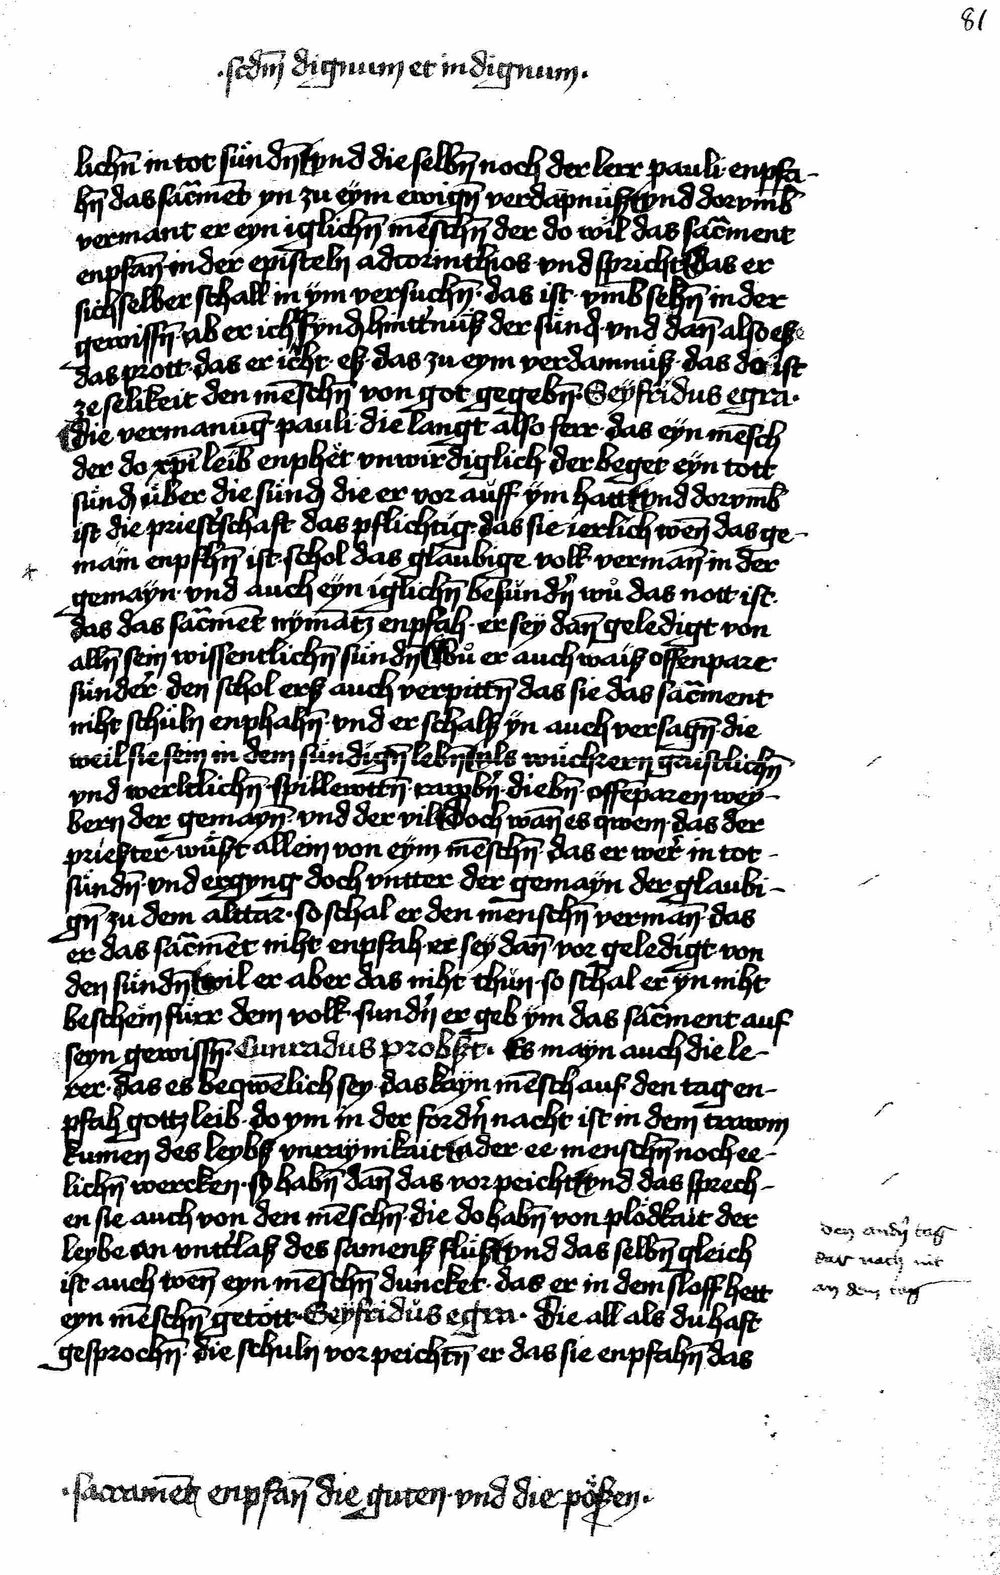 81
·scdm̄ dignum et indignum·
lichn̄ in tot sündn̄ vnd die selbn̄ noch der lerr pauli enpfa-
hn̄ das sac̄ment yn zu eym ewign̄ verdapnüß vnd dorvmb
vermant er eyn iglichn̄ menschn̄ der do wil das sac̄ment
enpfan̄ in der episteln ad corinthios vnd spricht Das er
sich selber schall in ym versuchn̄· das ist vmb sehn̄ in der
gewissn̄· ab er icht fynd hinttnüß der sünd vnd dan̄ also eß
das prott· das er icht eß das zu eym verdamnüß· das do ist
ze selikeit den mēschn̄ von got gegebn̄· Seyfridus egra·
Die vermanūg pauli die langt also ferr· das eyn mēsch
der do xpi leib enphet vnwirdiglich der beget eyn tott
sünd über die sünd die er vor auff ym hatt vnd dorvmb
ist die priestschaft das pflichtig· das sie ierlich wen̄ das ge-
main enpfhn̄ ist· schol das glaubige volk vermān in der
gemayn· vnd auch eyn iglichn̄ besundn̄ wů das nott ist·
das das sac̄mēt nymātz enpfah· er sey dan̄ geledigt von
alln̄ sein wissentlichn̄ sündn̄ Wů er auch waiß offenpare
sünder· den schol erß auch verpittn̄ das sie das sac̄ment
niht schüln enphahn̄· vnd er schalß yn auch versagn̄· die
weil sie sein in dem sündign̄ lebn̄ Als wüchrern gaistlichn̄
vnd werltlichn̄· spillewttn̄· rawbn̄· diebn̄· offēparen wey-
bern der gemayn̄· vnd der vil Doch wan̄ es qwem· das der
prießter wüßt allein von eym mēschn̄· das er wer in tot-
sündn̄· vnd ergyng doch vntter der gemayn der glaubi-
gn̄ zu dem alttar· so schal er den menschn̄ vermān· das
er das sac̄mēt niht enpfah· er sey dan̄ vor geledigt von
den sündn̄ Wil er aber das niht thün· so schal er yn niht
beschem̄ fürr dem volk· sundn̄ er geb ym das sac̄ment auf
seyn gewissn̄· Cunradus probst· Es mayn auch die le-
rer· das es beqwēlich sey· das kayn mēsch auf den tag en-
pfah gottz leib· do ym in der fordn̄ nacht ist in dem trawm
kumen des leybß vnraynikait ader ee menschn̄ noch ee-
lichn̄ wercken· so habn̄ dan̄ das vor peicht vnd das sprech-
en sie auch von den mēschn̄· die do habn̄ von plödkait der
leybe an vnttlaß des samenß flüß vnd das selbn̄ gleich
ist auch wen̄ eyn mēschn̄ duncket· das er in dem sloff hett
eyn mēschn̄ getött· Seyfridus egra· Die all als du hast
gesprochn̄· die schuln vor peichtn̄ er das sie enpfahn̄ das
den andn̄ tag
dar nach nit
an dem tag
·sacramēt enpfan̄ die guten vnd die pößen·